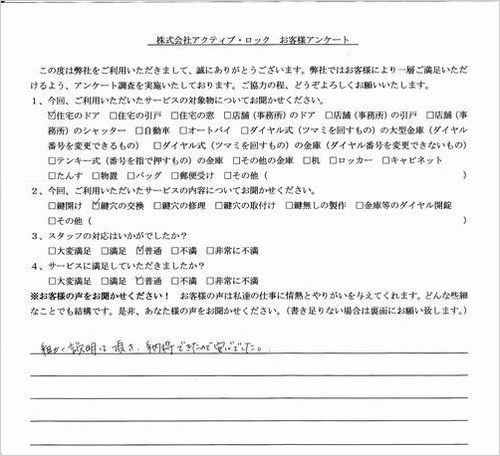 株式会社アクティブ・ロック お客様アンケート
この度は弊社をご利用いただきまして、誠にありがとうございます。弊社ではお客様により一層ご満足いただ
けるよう、アンケート調査を実施いたしております。ご協力の程、どうぞよろしくお願いいたします。
1、今回、ご利用いただいたサービスの対象物についてお聞かせください。
☑住宅のドア □住宅の引戸 □住宅の窓 □店舗（事務所）のドア □店舗（事務所）の引戸 □店舗（事
務所）のシャッター □自動車 □オートバイ □ダイヤル式（ツマミを回すもの）の大型金庫（ダイヤル
番号を変更できるもの） □ダイヤル式（ツマミを回すもの）の金庫（ダイヤル番号を変更できないもの）
□テンキー式（番号を指で押すもの）の金庫 □その他の金庫 □机 □ロッカー □キャビネット
□たんす □物置 □バッグ □郵便受け □その他（ ）
2、今回、ご利用いただいたサービスの内容についてお聞かせください。
□鍵開け ☑鍵穴の交換 □鍵穴の修理 □鍵穴の取付け □鍵無しの製作 □金庫等のダイヤル開錠
□その他（ ）
3、スタッフの対応はいかがでしたか？
□大変満足 □満足 ☑普通 □不満 □非常に不満
4、サービスに満足していただきましたか？
□大変満足 □満足 ☑普通 □不満 □非常に不満
※お客様の声をお聞かせください！ お客様の声は私達の仕事に情熱とやりがいを与えてくれます。どんな些細
なことでも結構です。是非、あなた様の声をお聞かせください。（書き足りない場合は裏面にお願い致します。）
細かく説明して頂き、納得できたので